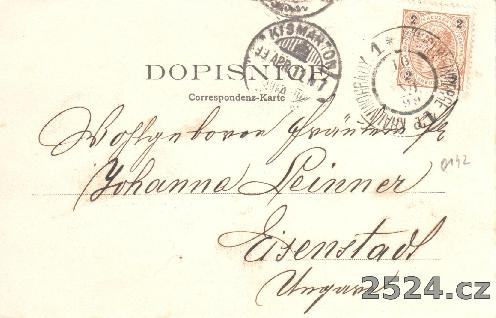 KISMARTON
2 2
DOPISNICE
Correspondenz-Karte
Wohlgeboren Fräulein
Johanna Leinner
0142
Eisenstadt
Ungarn
2524.cz